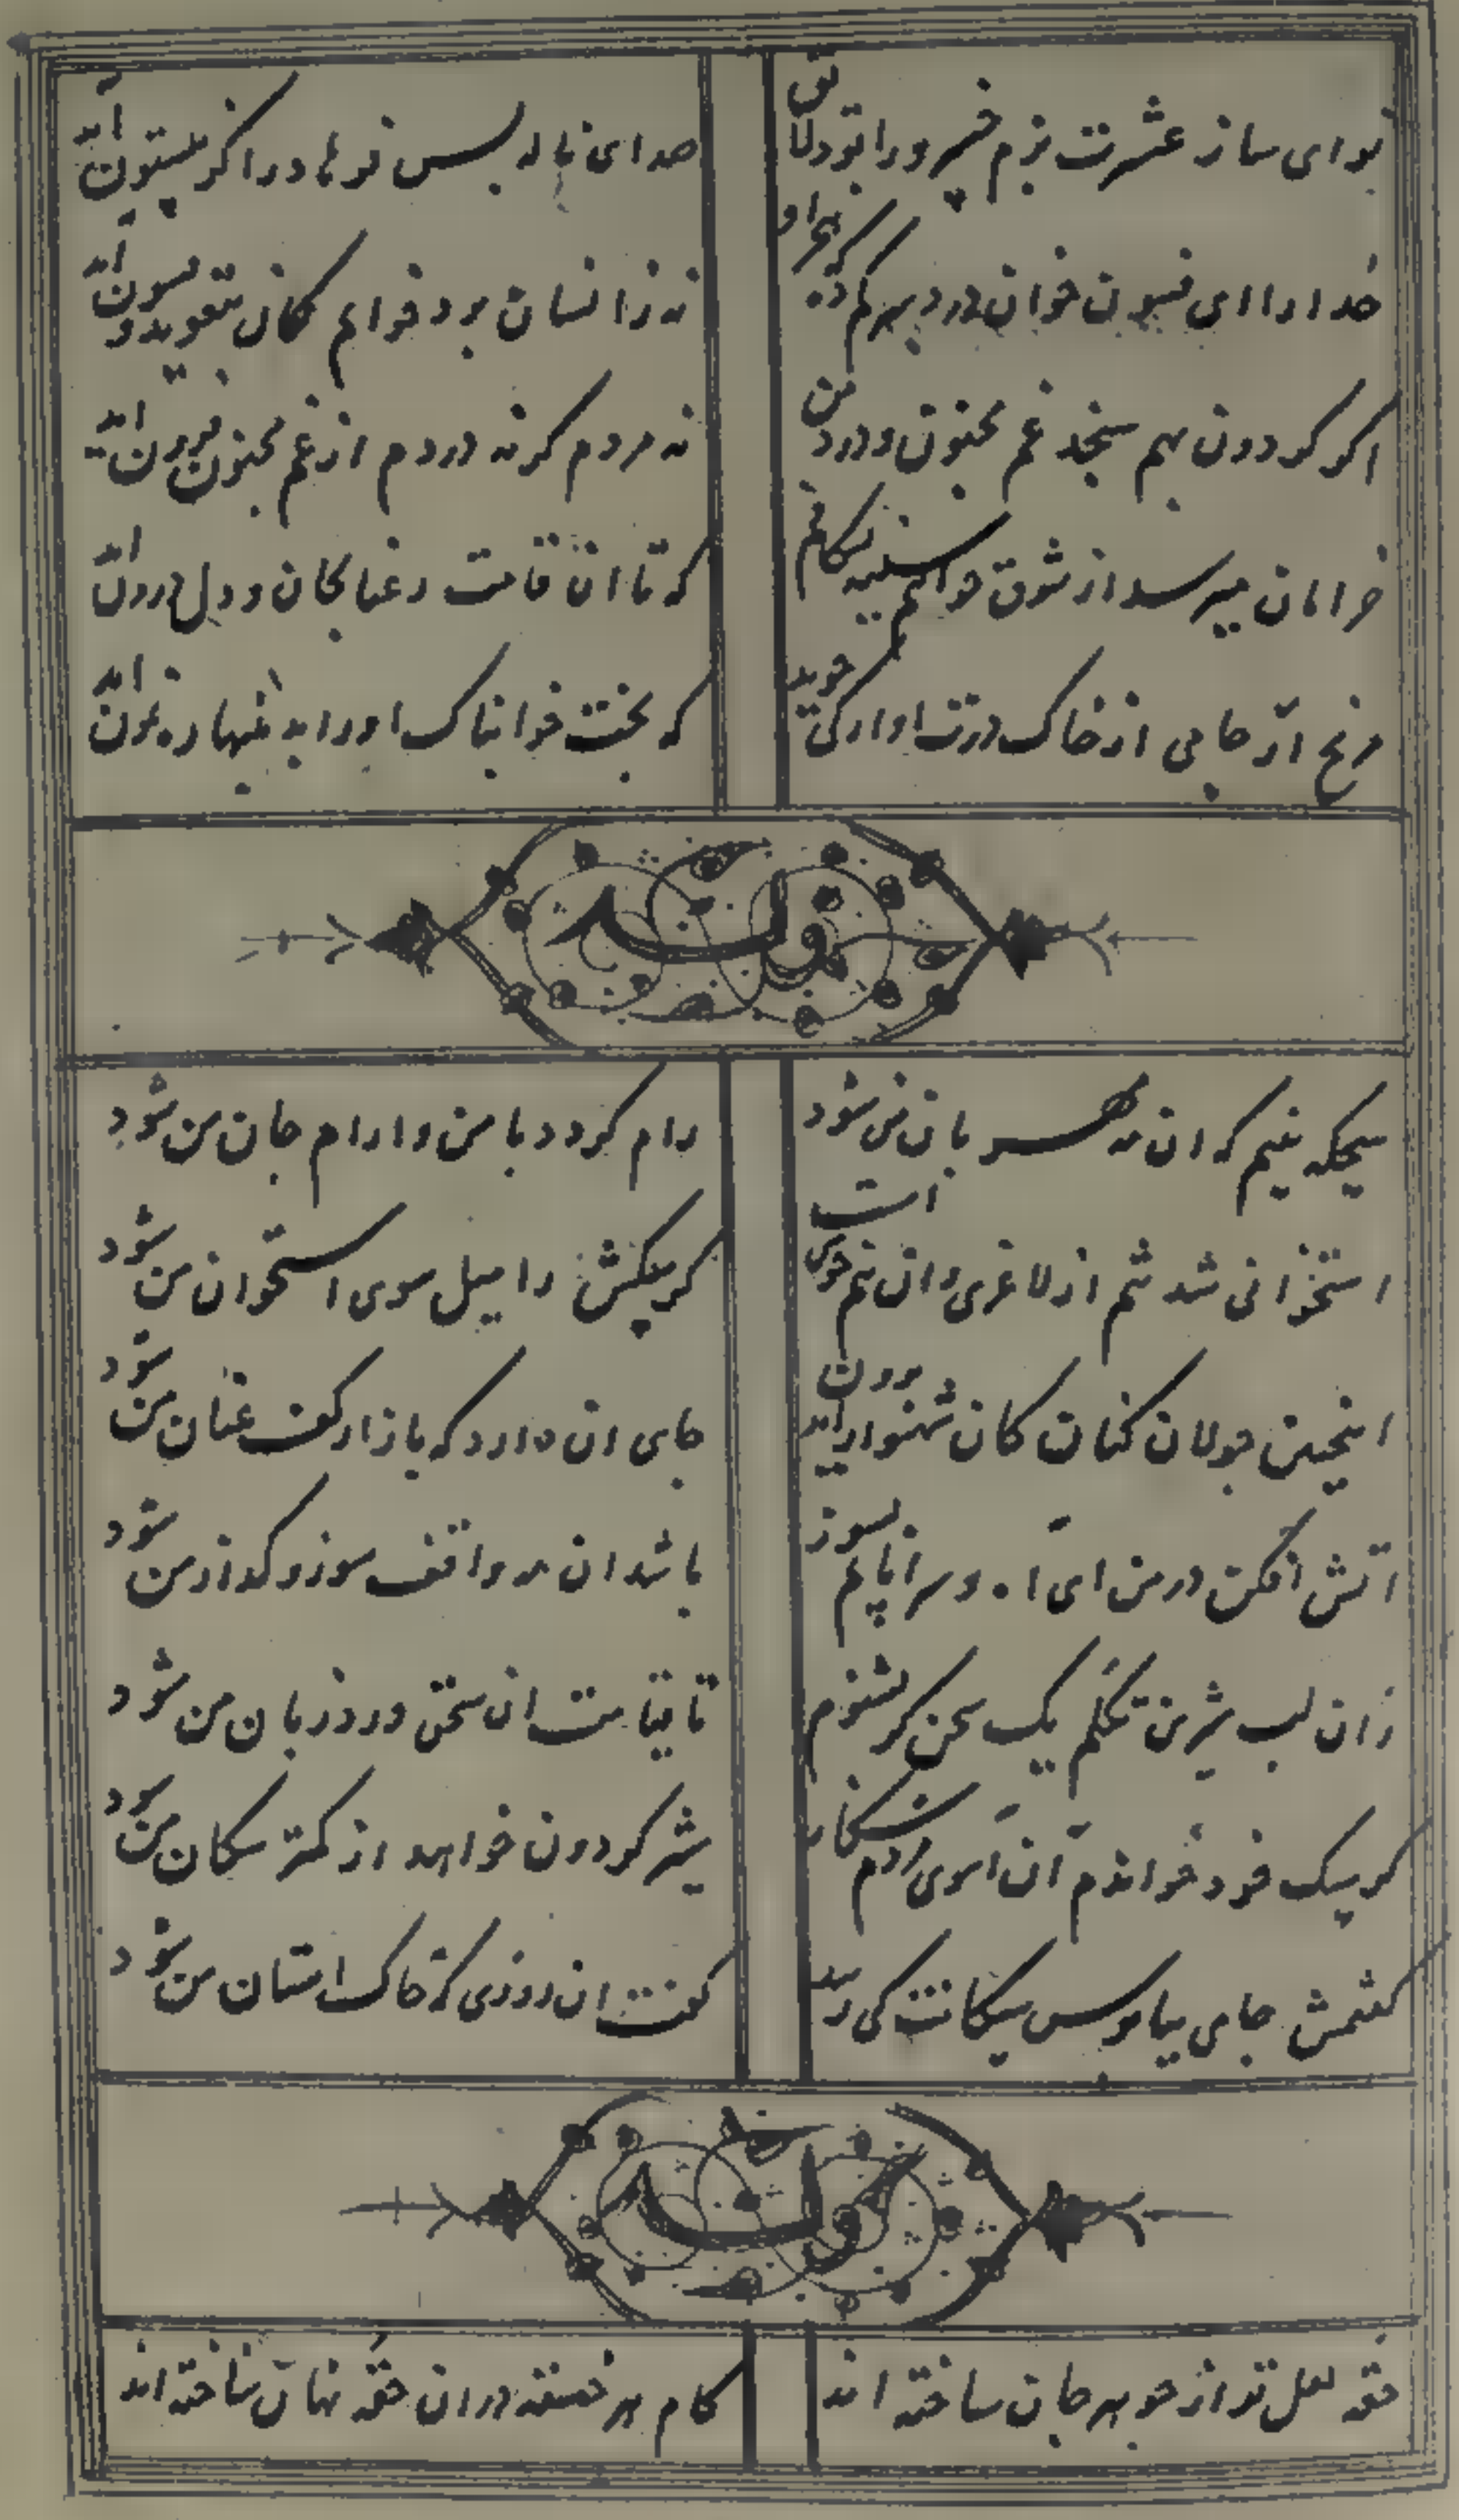 نوای ساز عشرت بزم خسرو را بود لایق
صدای ناله بس فرهاد را کز بیستون آید
خدا را ای فسون خوان درد سر کم ده که بیمار او
نه زانسان برد خوابم کان بتعویذ و فسون آید
اگر گردون بهم سنجد غم مجنون و درد من
نه مردم گر نه دردم از غم مجنون فزون آید
خرامان میرسد از شوق خواهم سینه بشکافم
که تا ان قامت رعنا بجان و دل درون آید
مرنج ار جامی از خاک درت اوارکی جوید
که بخت خوابناک اورا بد ینها رهنمون آید
وله
سیحکه بینم که ان مه مهربان من شود
رام کردد با من و ارام جان من شود
استخوانی شد تنم از لاغری وان هم خوش است
کر سکش را میل سوی استخوان من شود
اینچین جولان کنان کان شهسوار آید برون
جای ان دارد که باز از کف عنان من شود
اتش افکن در من ای اه و سراپایم بسوز
باشد ان مه واقف سوز و کداز من شود
زان لب شیرین تکلم یک سخن کر بشنوم
تا قیامت ان سخن ورد زبان من شود
کر سک خود خواندم آن آهوی مردم شکار
شیر کردون خواهد از کمتر سکان من شود
کفتمش جامی بپابوس سکانت کی رسد
کفت ان روزی که خاک استان من شود
وله
حقه لعل تو از جوهر جان ساخته اند
کام هر خسته دران حقه نهان ساخته اند